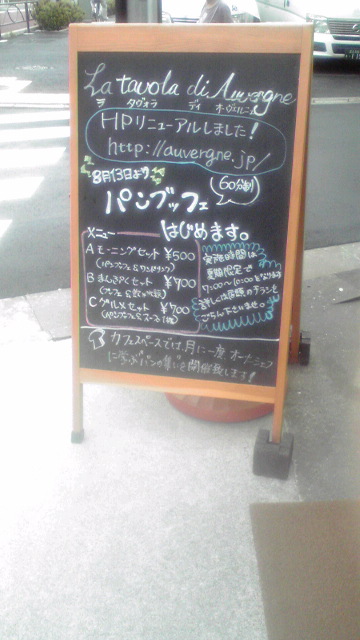 La tavola di Auvergne
ラ タヴォラ ディ オーヴェルニュ
HPリニューアルしました!
http://auvergne.jp/
8月13日より
パンブッフェ
60分制
はじめます。
メニュー
A モーニングセット ¥500
(パンブッフェ&ワンドリンク)
B まんぷくセット ¥700
C グルメセット ¥700
実施時間は
夏期限定で
7:00〜10:00となります
詳しくは店頭のチラシを
ごらん下さいませ。
カフェスペースでは月に一度、オーナーシェフ
に学ぶパンの集いを開催致します!